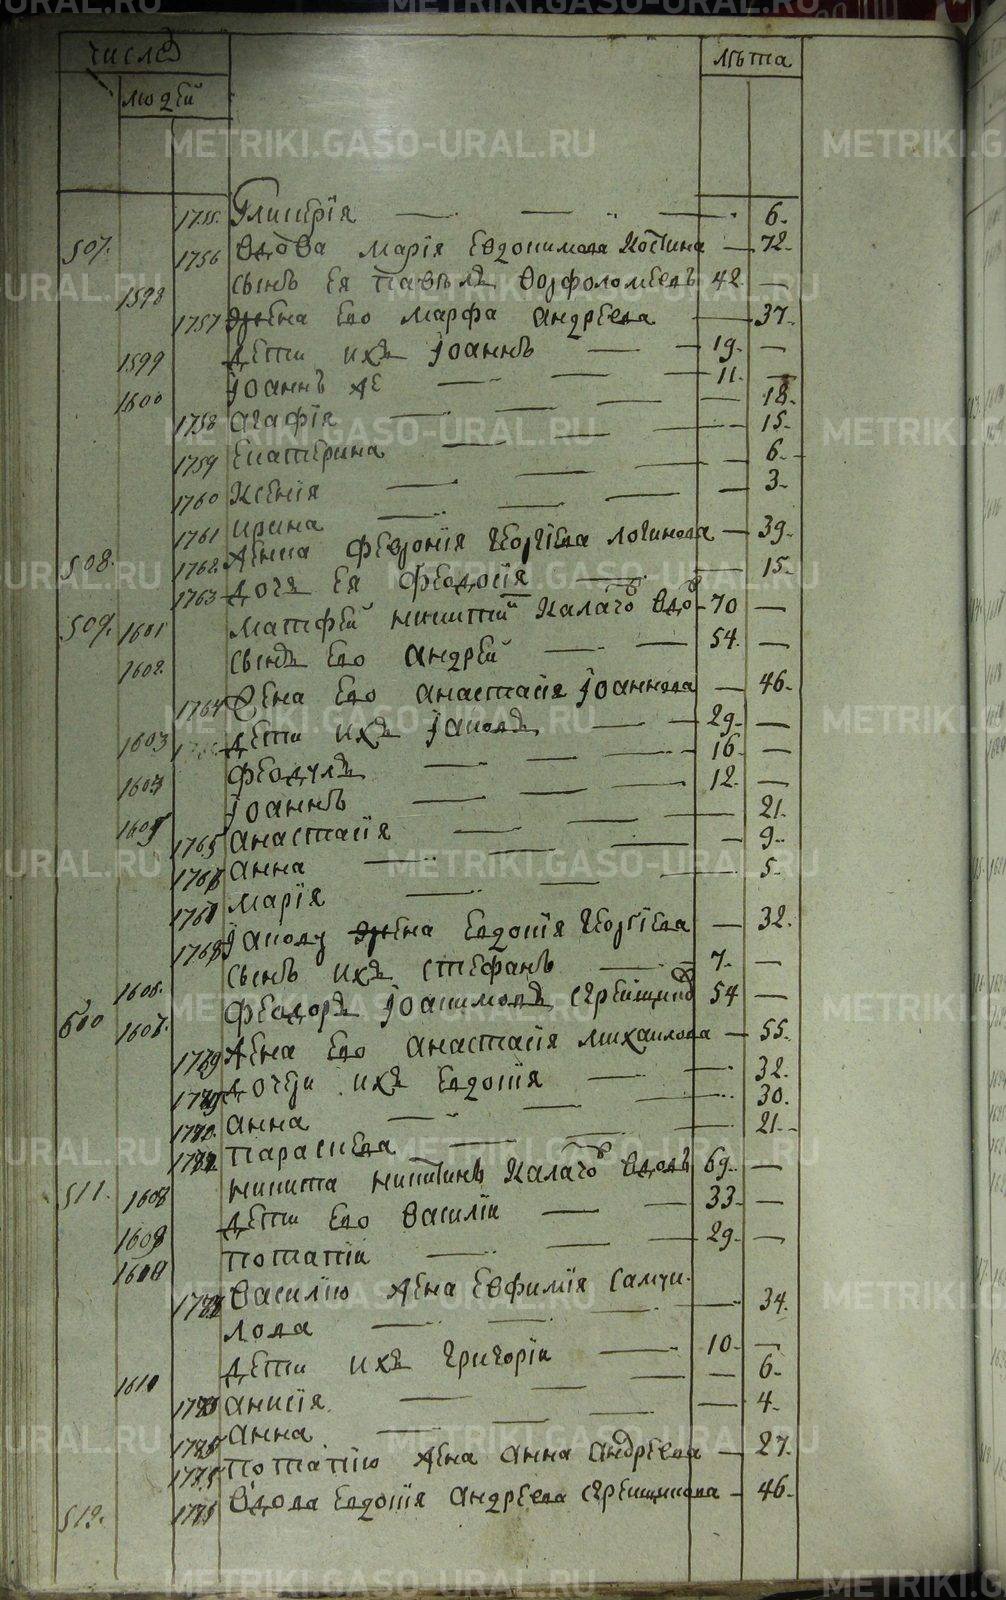 числѡ лѣта
людей
1755. Гликерїя — 6.
507. 1756 вдова марїя Евдокимова Костина — 72.
1598 сынъ Ея павелъ ворфоломеевъ 42. —
1757 жена Его марфа андреева — 37.
1599 дети ихъ Іоаннъ — 19. —
1600 Іоаннъ же — 11. —
1758 агафїя — 18.
1759 Екатерина — 15.
1760 Ксенїя — 6.
1761 ирина — 3.
508. 1762 жонка февронїя Георгїева логинова — 39.
1763 дочь Ея феодосїя — 15.
509. 1601 матфей никитин Калачов вдов 70 —
1602 сынъ Его андрей — 54. —
1764 жена Его анастасїя Іоаннова — 46.
1603 дети ихъ Іаковъ — 29. —
1604 феодулъ — 16. —
1605 Іоаннъ — 12. —
1765 анастасїя — 21.
1766 анна — 9.
1767 марїя — 5.
1768 Іакову жена Евдокїя Георгїева — 32.
1606. сынъ ихъ стефанъ — 7. —
1607. феодоръ Іоакимовъ 54 —
1769 жена Его анастасїя михаилова — 55.
дочери ихъ Евдокїя — 32.
анна — 30.
параскева — 21.
511. 1608 никита никитинъ Калачов вдовъ 69. —
1609 дети Его василїи — 33. —
потапїи — 29. —
василїю жена Евфимїя самуи-
лова — 34.
1610 дети ихъ григорїи — 10. —
анисїя — 6.
анна — 4.
потапїю жена анна андреева — 27.
512. вдова Евдокїя андреева — 46.
METRIKI.GASO-URAL.RU